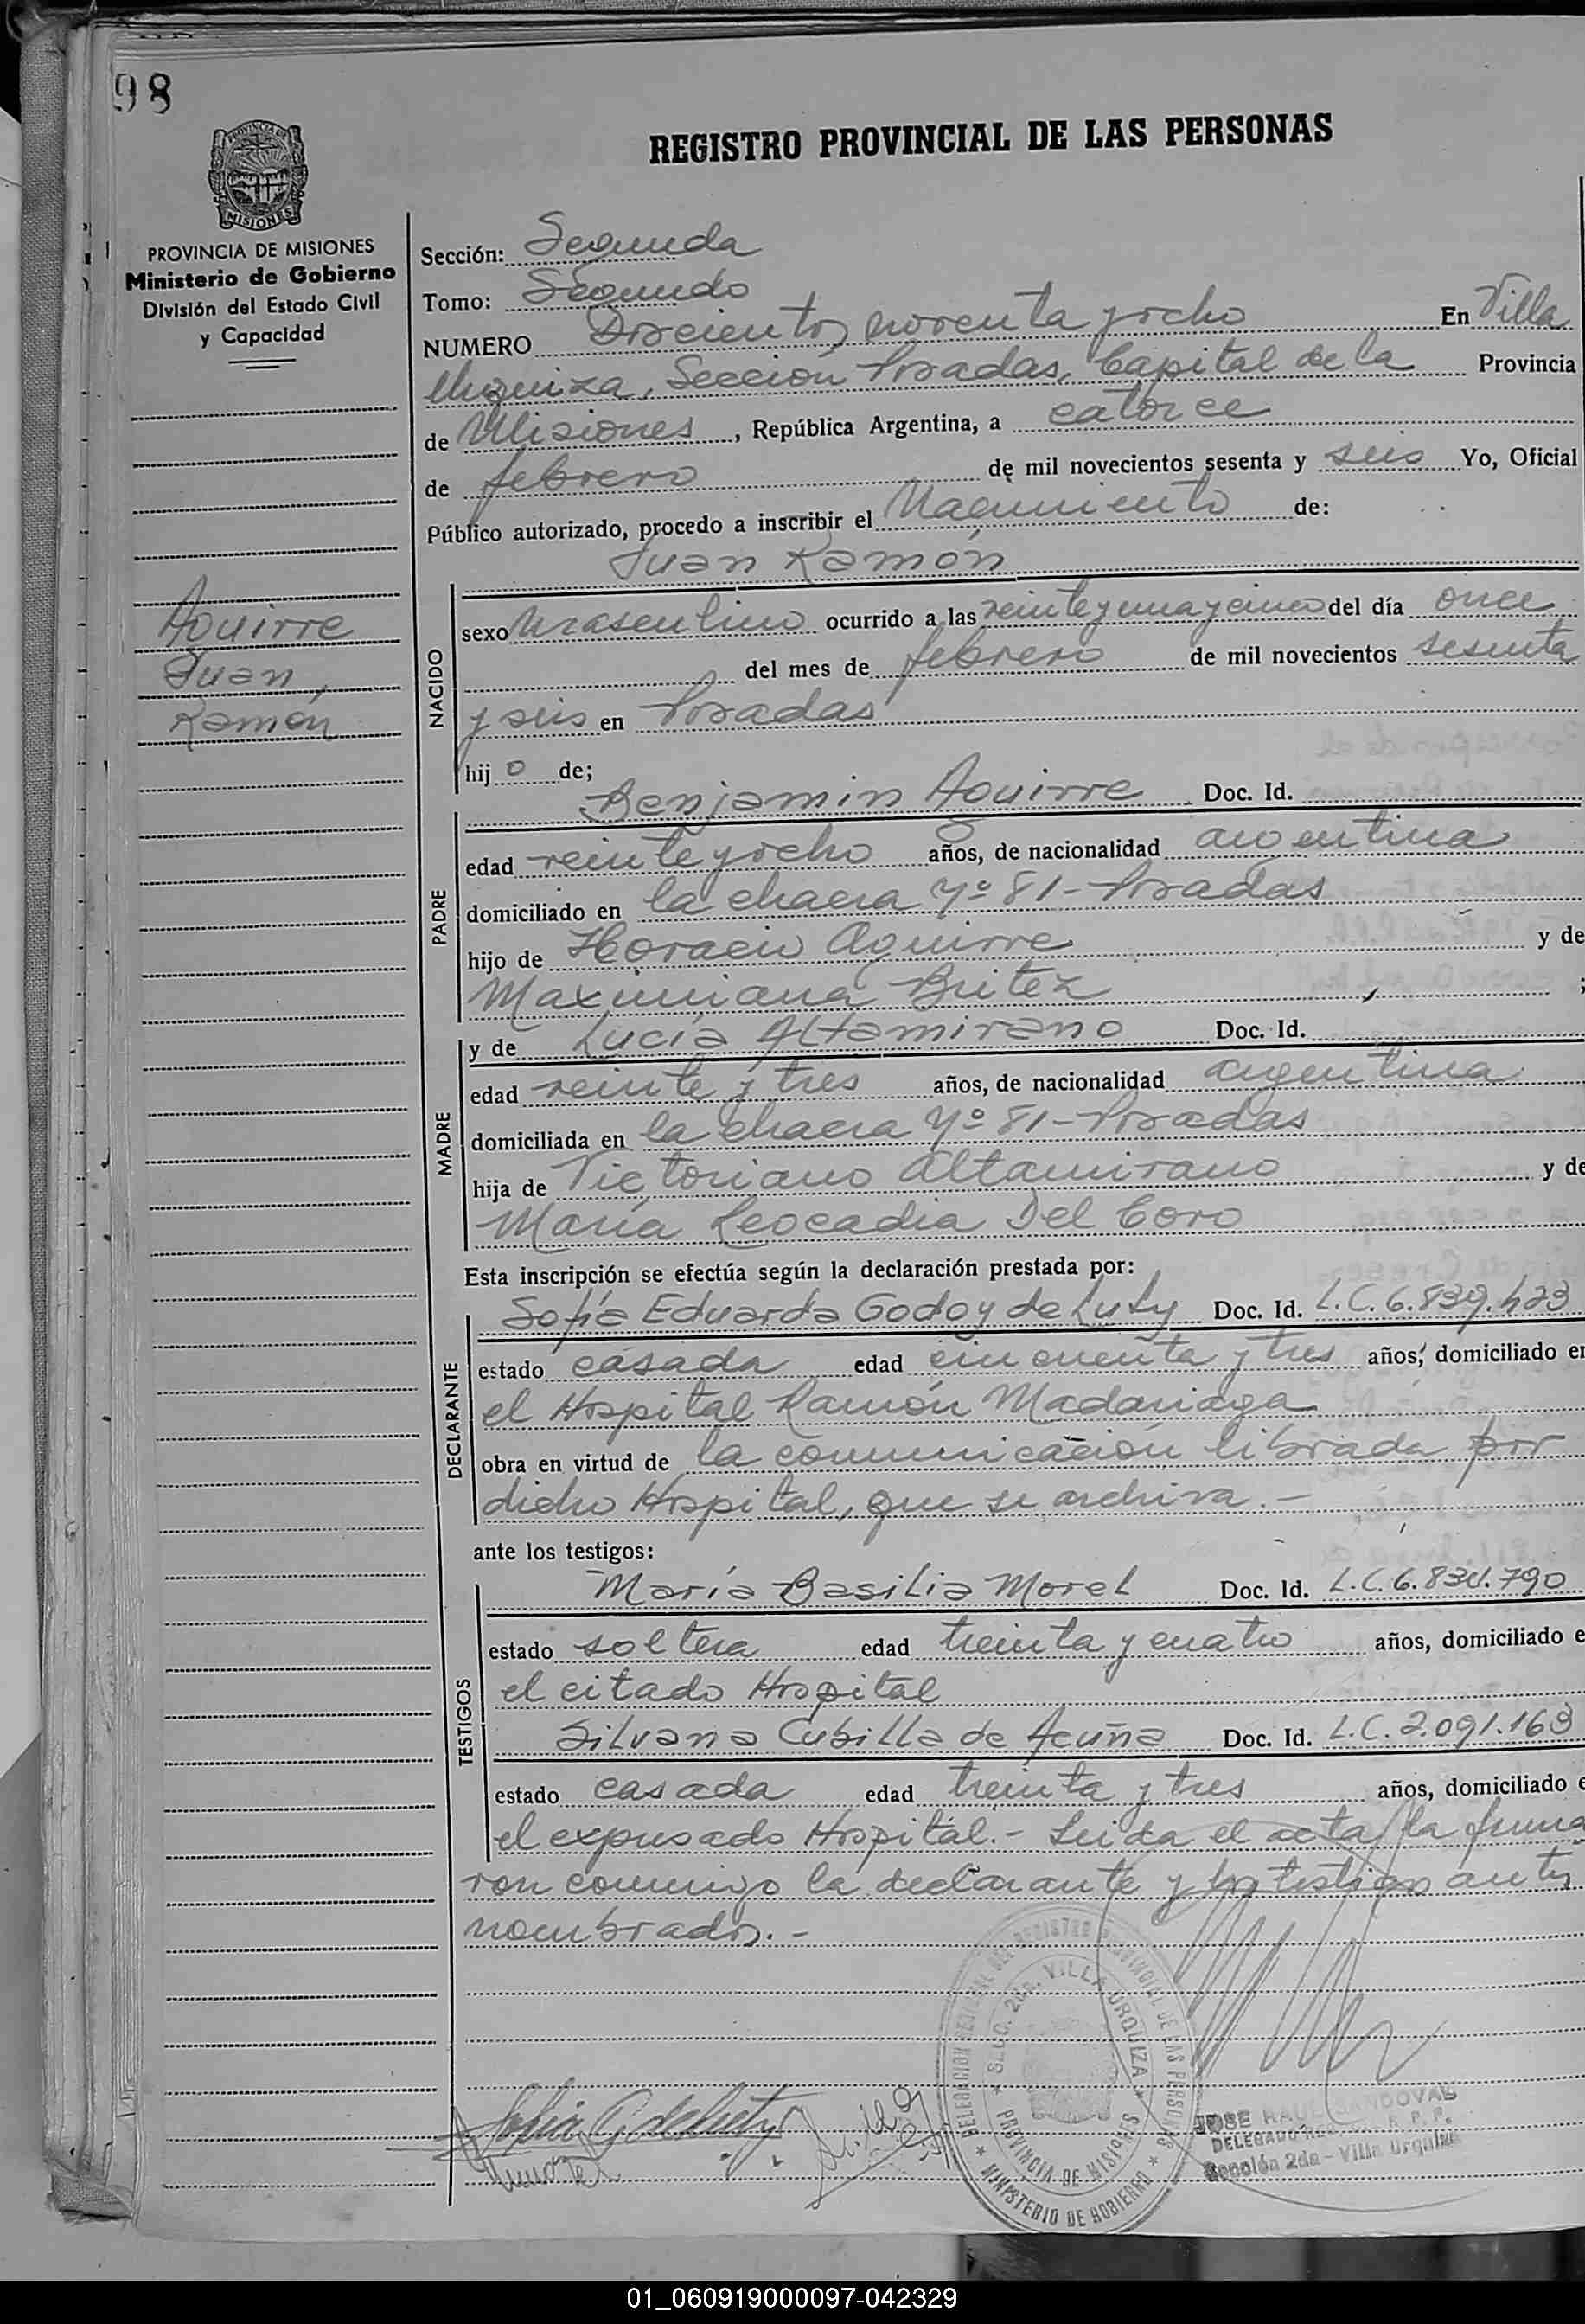 98
REGISTRO PROVINCIAL DE LAS PERSONAS
PROVINCIA DE
MISIONES
PROVINCIA DE MISIONES
Ministerio de Gobierno
División del Estado Civil
y Capacidad
Aguirre
Juan
Ramón
Sección: Segunda
Tomo: Segundo
NUMERO Doscientos noventa y ocho En Villa
Urquiza, Sección Posadas, Capital de la Provincia
de Misiones, República Argentina, a catorce
de febrero de mil novecientos sesenta y seis Yo, Oficial
Público autorizado, procedo a inscribir el Nacimiento de:
Juan Ramón
NACIDO
sexo masculino ocurrido a las veinte y una y cinco del día once
del mes de febrero de mil novecientos sesenta
y seis en Posadas
hijo de;
PADRE
Benjamin Aguirre Doc. Id.
edad veinte y ocho años, de nacionalidad argentina
domiciliado en la chacra Nº 81 - Posadas
hijo de Horacio Aguirre y de
Maximiana Britez ;
MADRE
y de Lucía Altamirano Doc. Id.
edad veinte y tres años, de nacionalidad argentina
domiciliada en la chacra Nº 81 - Posadas
hija de Victoriano Altamirano y de
María Leocadia Del Coro
Esta inscripción se efectúa según la declaración prestada por:
DECLARANTE
Sofía Eduarda Godoy de Luty Doc. Id. L.C. 6.839.423
estado casada edad cincuenta y tres años, domiciliado en
el Hospital Ramón Madariaga
obra en virtud de la comunicación librada por
dicho Hospital, que se archiva.-
ante los testigos:
TESTIGOS
María Basilia Morel Doc. Id. L.C. 6.834.790
estado soltera edad treinta y cuatro años, domiciliado e
el citado Hospital
Silvana Cubilla de Acuña Doc. Id. L.C. 2.091.163
estado casada edad treinta y tres años, domiciliado e
el expresado Hospital.- Leida el acta, la firma
ron conmigo la declarante y los testigos antes
nombrados.-
DELEGACION DEL REGISTRO PROVINCIAL DE LAS PERSONAS
SECC. 2da. VILLA URQUIZA
PROVINCIA DE MISIONES
MINISTERIO DE GOBIERNO
Sofia G de Luty
JOSE RAUL SANDOVAL
DELEGADO R. P. P.
Sección 2da - Villa Urquiza
01_060919000097-042329